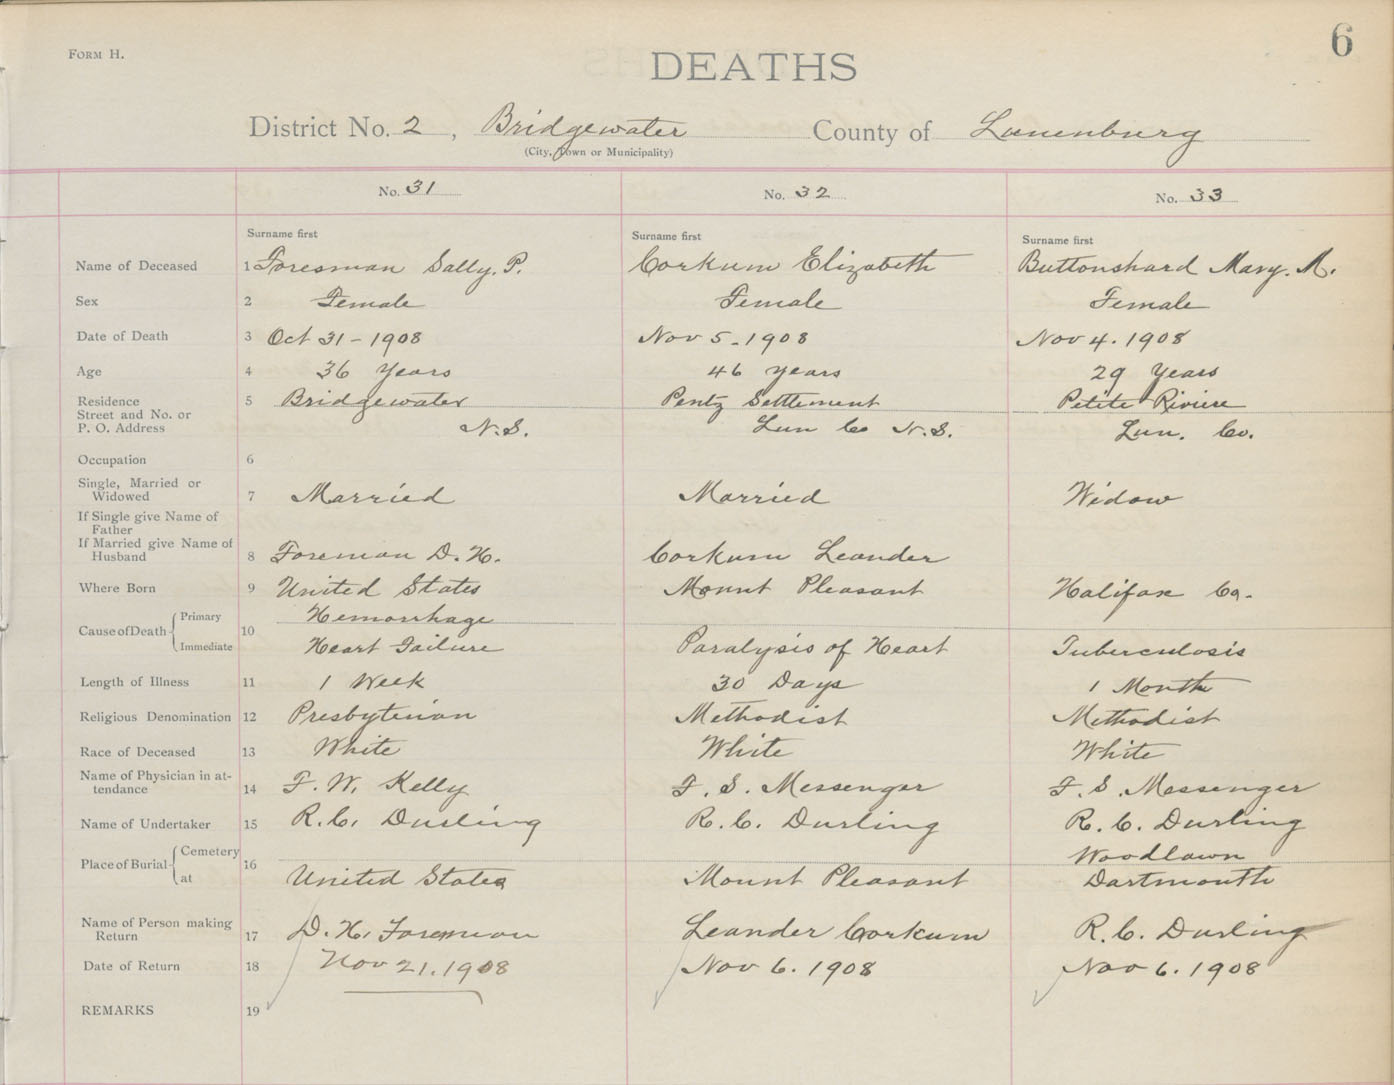 6
FORM H.
DEATHS
District No. 2, Bridgewater County of Lunenburg
(City, Town or Municipality)
No. 31 No. 32 No. 33
Surname first Surname first Surname first
Name of Deceased 1 Foresman Sally. P. Corkum Elizabeth Buttonshard Mary. M.
Sex 2 Female Female Female
Date of Death 3 Oct 31 - 1908 Nov 5 - 1908 Nov 4. 1908
Age 4 36 Years 46 years 29 Years
Residence 5 Bridgewater Pentz Settlement Petite Riviere
Street and No. or
P. O. Address N.S. Lun Co N.S. Lun. Co.
Occupation 6
Single, Married or
Widowed 7 Married Married Widow
If Single give Name of
Father
If Married give Name of
Husband 8 Foreman D. H. Corkum Leander
Where Born 9 United States Mount Pleasant Halifax Co.
Cause of Death 10 Primary Hemorrhage
Immediate Heart Failure Paralysis of Heart Tuberculosis
Length of Illness 11 1 Week 30 Days 1 Month
Religious Denomination 12 Presbyterian Methodist Methodist
Race of Deceased 13 White White White
Name of Physician in at-
tendance 14 F. W. Kelly F. S. Messenger F. S. Messenger
Name of Undertaker 15 R. C. Durling R. C. Durling R. C. Durling
Place of Burial 16 Cemetery Woodlawn
at United States Mount Pleasant Dartmouth
Name of Person making
Return 17 D. H. Foreman Leander Corkum R. C. Durling
Date of Return 18 Nov 21. 1908 Nov 6. 1908 Nov 6. 1908
REMARKS 19